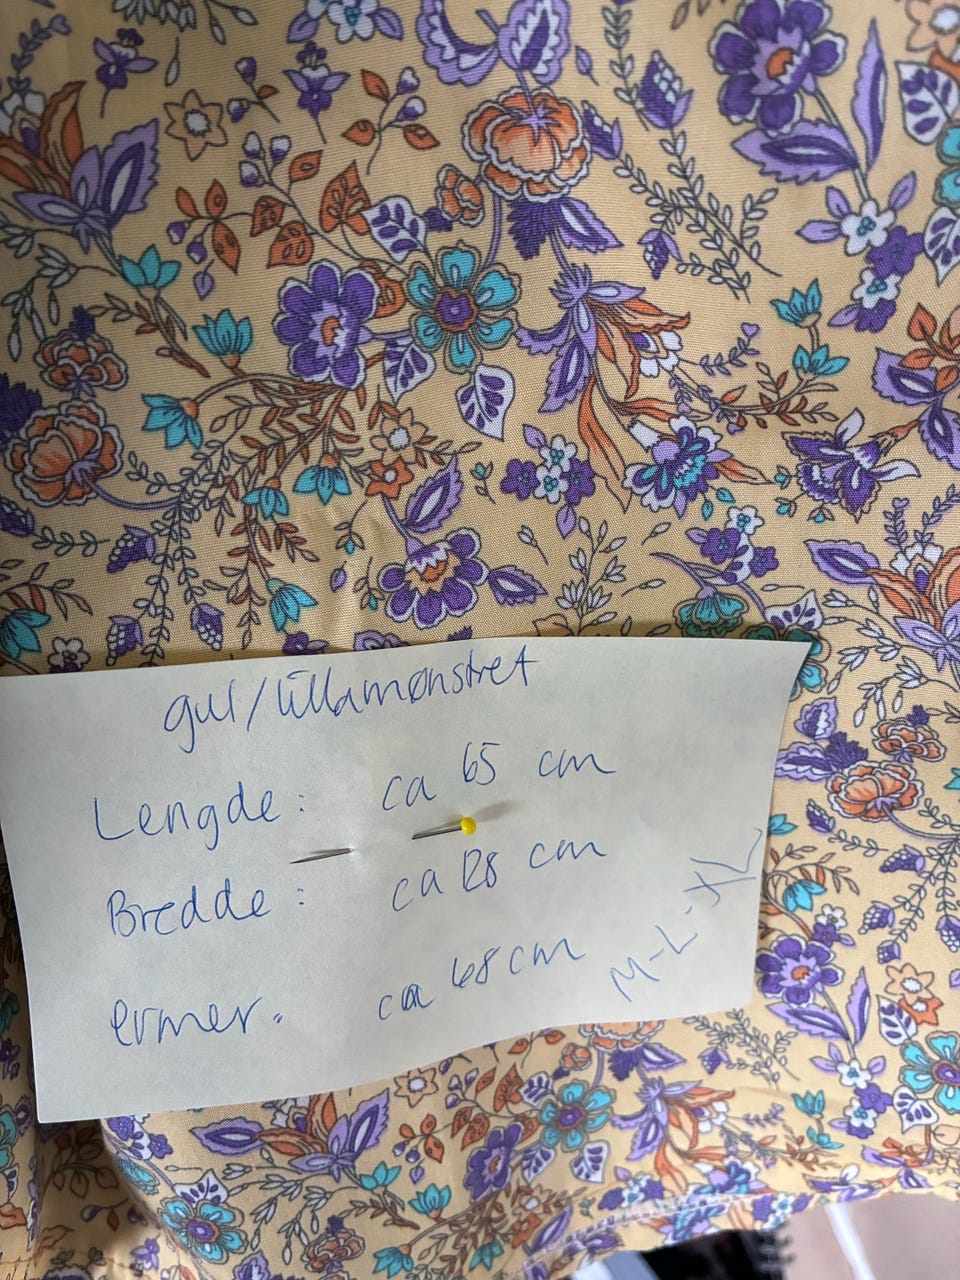 gul/lillamønstret
Lengde: ca 65 cm
Bredde: ca 128 cm
ermer: ca 68 cm
M-L-XL